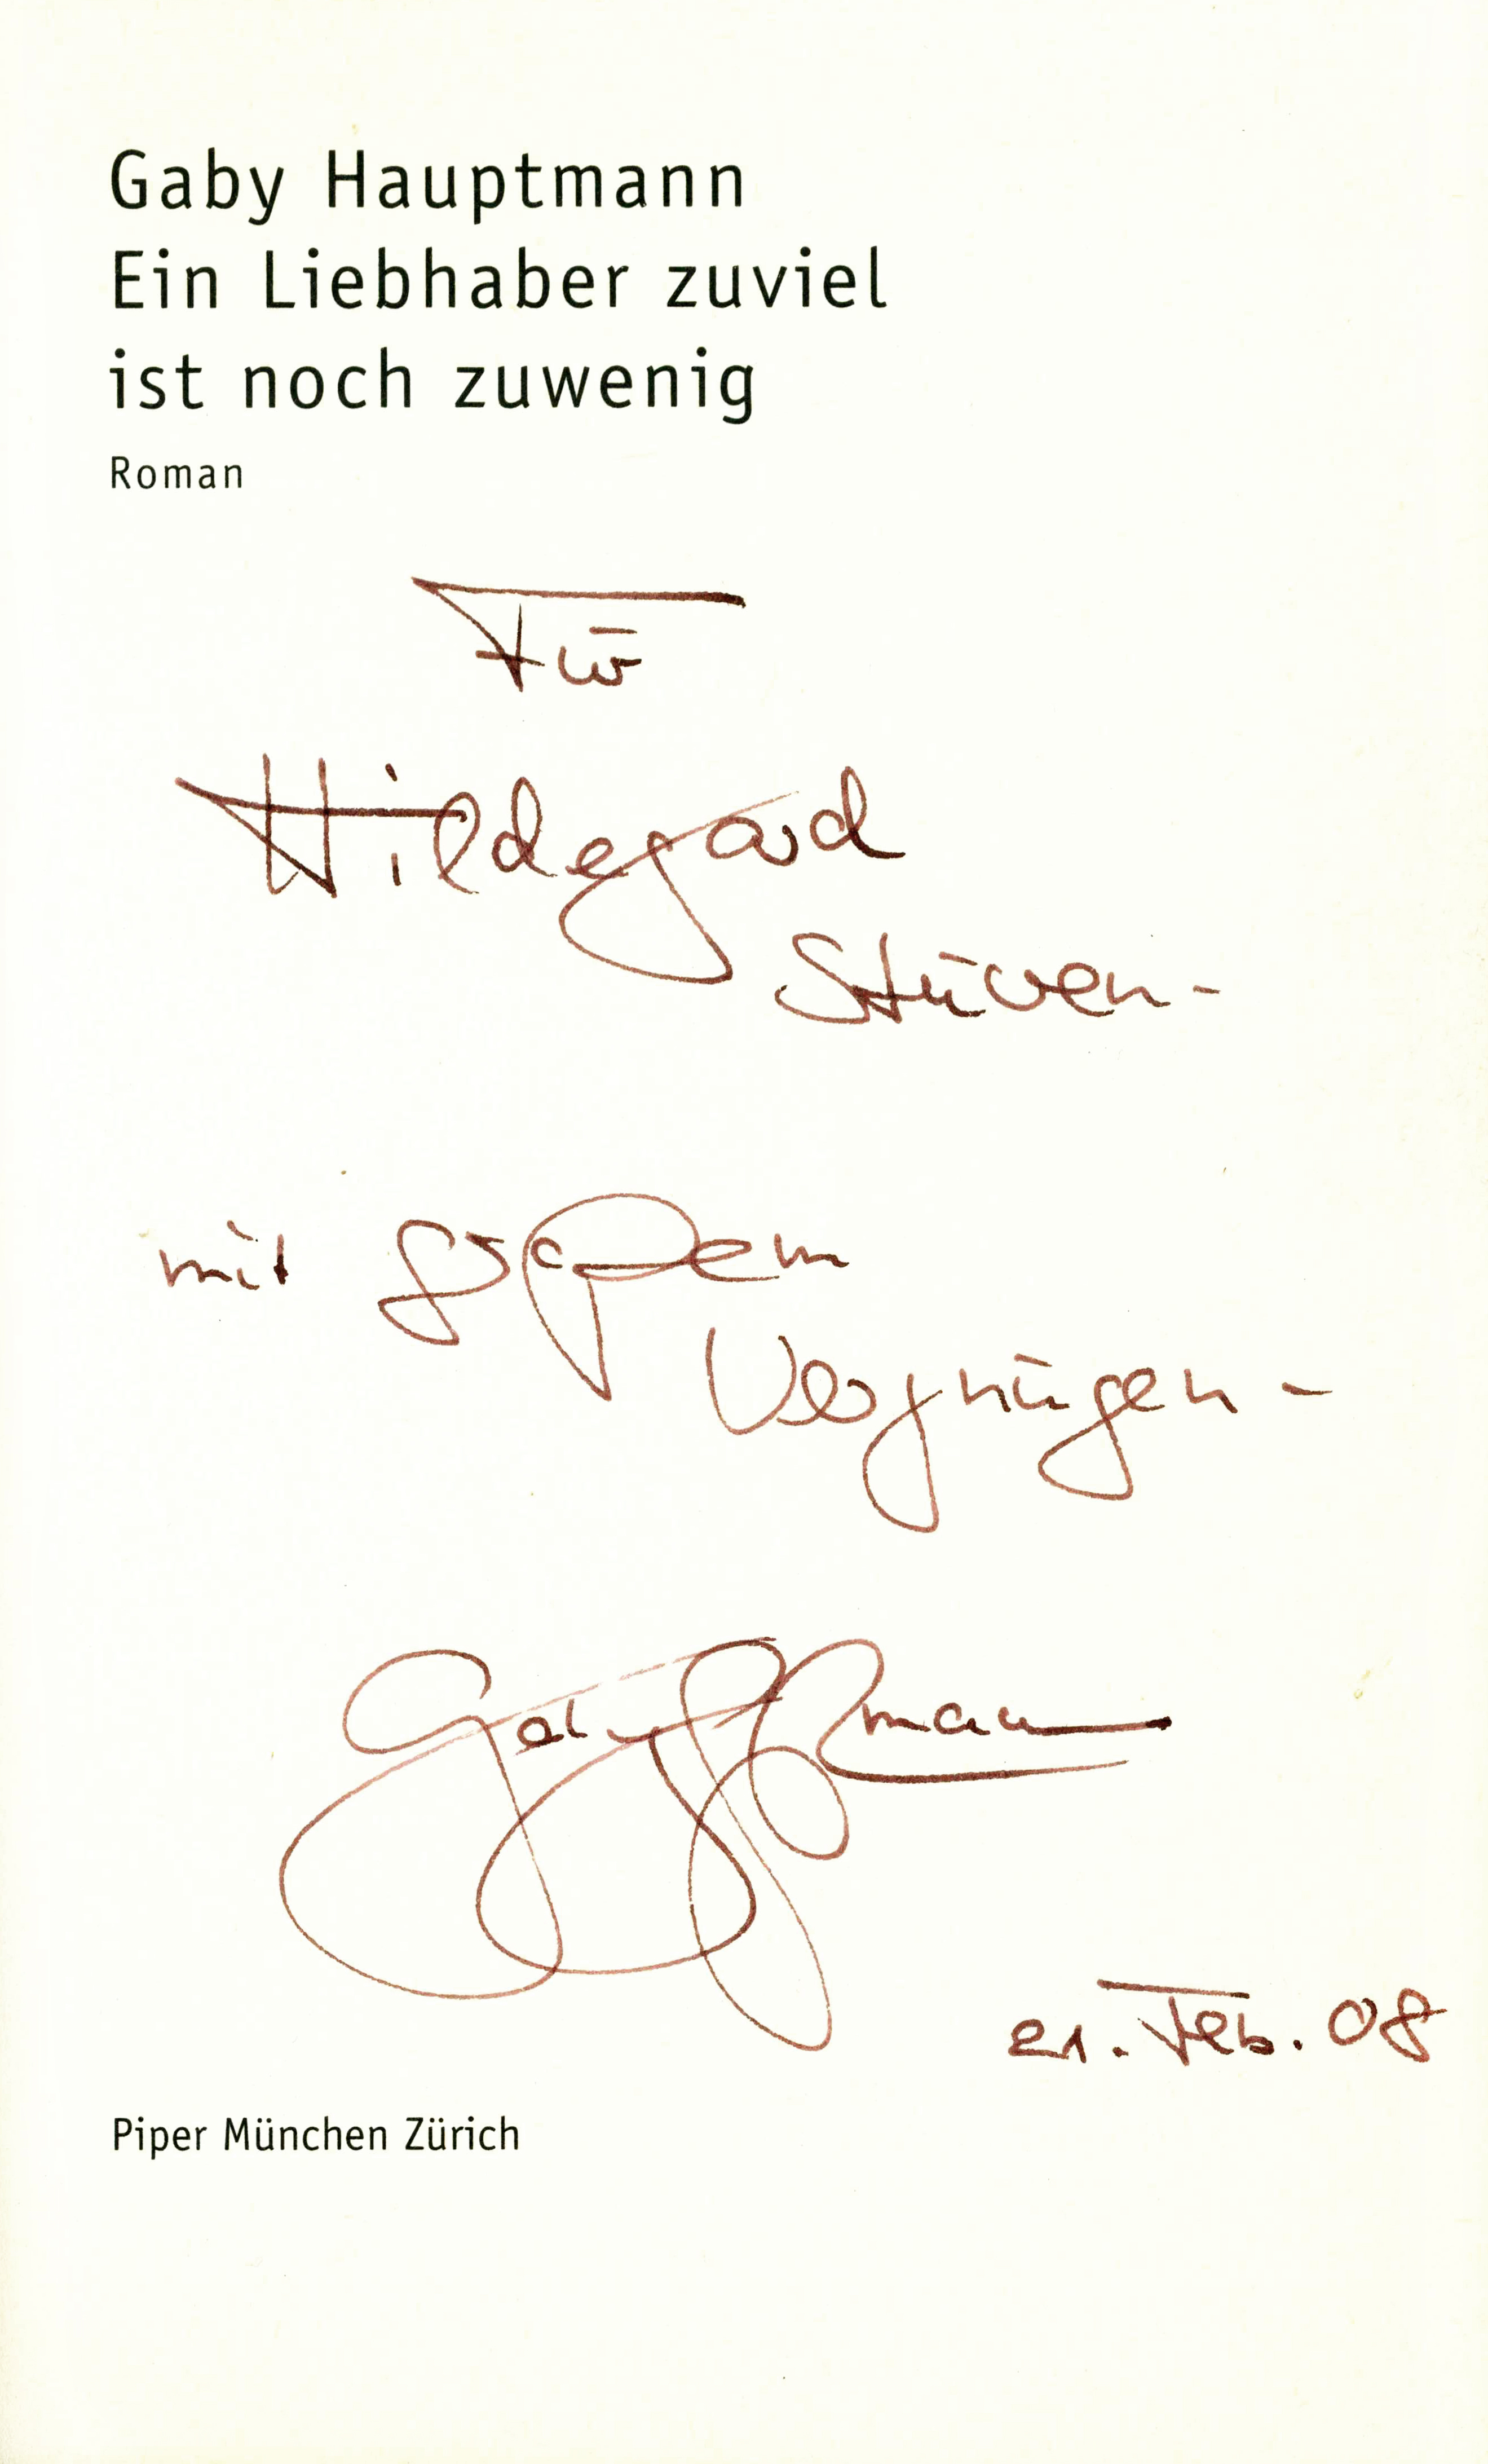 Gaby Hauptmann
Ein Liebhaber zuviel
ist noch zuwenig
Roman
Für
Hildegard
Stüven -
mit großem
Vergnügen -
Gaby Hauptmann
21. Feb. 08
Piper München Zürich